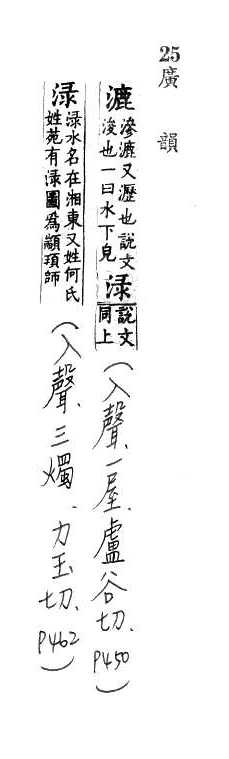 25廣韻
漉滲漉又瀝也說文
浚也一曰水下皃渌說文
同上(入聲、一屋、盧谷切、P450)
渌渌水名在湘東又姓何氏
姓苑有渌圖爲顓頊師(入聲、三燭、力玉切、P462)